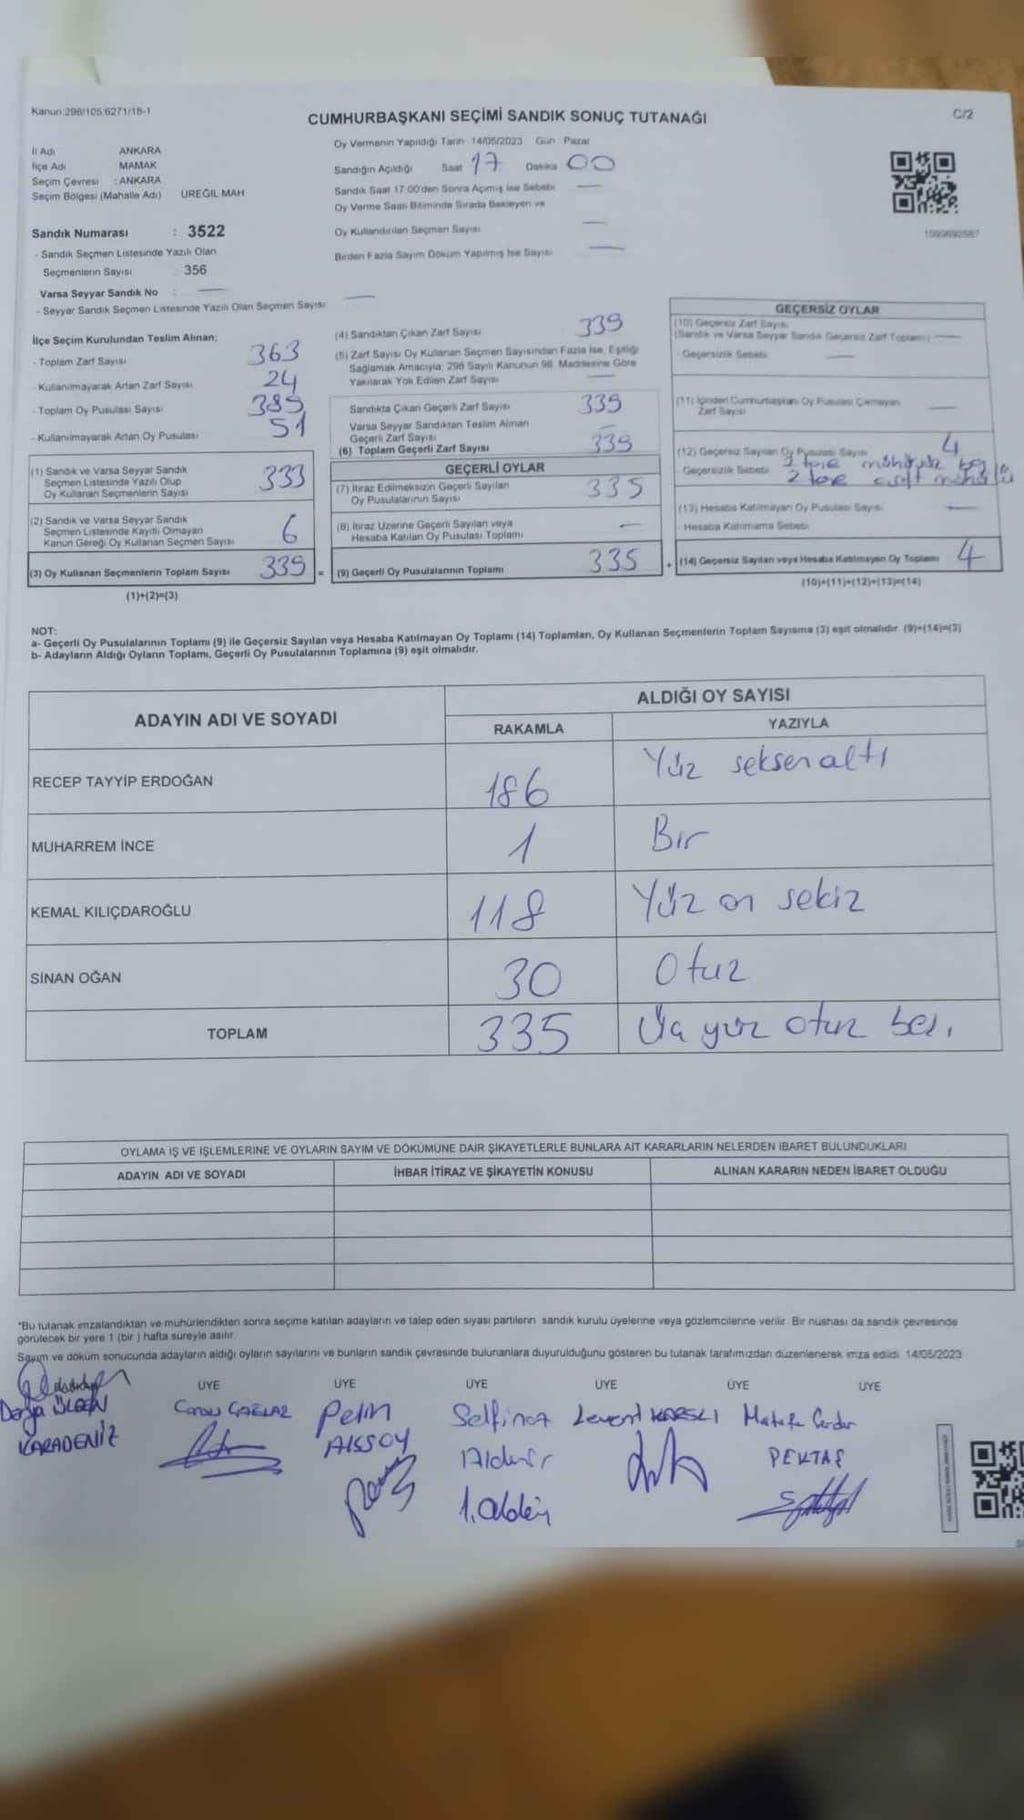 Kanun:298/105:6271/18-1
CUMHURBAŞKANI SEÇİMİ SANDIK SONUÇ TUTANAĞI
C/2
Oy Vermenin Yapıldığı Tarih 14/05/2023 Gün Pazar
İl Adı ANKARA
İlçe Adı MAMAK
Seçim Çevresi : ANKARA
Seçim Bölgesi (Mahalle Adı) ÜREĞİL MAH
Sandığın Açıldığı Saat 17 Dakika 00
Sandık Saat 17 00'den Sonra Açımış İse Sebebi —
Oy Verme Saati Bitiminde Sırada Bekleyen ve
Oy Kullandırılan Seçmen Sayısı —
Birden Fazla Sayım Döküm Yapılmış İse Sayısı —
Sandık Numarası : 3522
- Sandık Seçmen Listesinde Yazılı Olan
Seçmenlerin Sayısı 356
Varsa Seyyar Sandık No : —
- Seyyar Sandık Seçmen Listesinde Yazılı Olan Seçmen Sayısı —
İlçe Seçim Kurulundan Teslim Alınan;
- Toplam Zarf Sayısı 363
- Kullanılmayarak Artan Zarf Sayısı 24
- Toplam Oy Pusulası Sayısı 385
- Kullanılmayarak Artan Oy Pusulası 51
(1) Sandık ve Varsa Seyyar Sandık
Seçmen Listesinde Yazılı Olup
Oy Kullanan Seçmenlerin Sayısı 333
(2) Sandık ve Varsa Seyyar Sandık
Seçmen Listesinde Kayıtlı Olmayan
Kanun Gereği Oy Kullanan Seçmen Sayısı 6
(3) Oy Kullanan Seçmenlerin Toplam Sayısı 339 =
(1)+(2)=(3)
(4) Sandıktan Çıkan Zarf Sayısı 339
(5) Zarf Sayısı Oy Kullanan Seçmen Sayısından Fazla İse, Eşitliği
Sağlamak Amacıyla; 298 Sayılı Kanunun 98. Maddesine Göre
Yakılarak Yok Edilen Zarf Sayısı —
Sandıkta Çıkan Geçerli Zarf Sayısı 339
Varsa Seyyar Sandıktan Teslim Alınan
Geçerli Zarf Sayısı —
(6) Toplam Geçerli Zarf Sayısı 339
GEÇERLİ OYLAR
(7) İtiraz Edilmeksizin Geçerli Sayılan
Oy Pusulalarının Sayısı 335
(8) İtiraz Üzerine Geçerli Sayılan veya
Hesaba Katılan Oy Pusulası Toplamı —
(9) Geçerli Oy Pusulalarının Toplamı 335 +
GEÇERSİZ OYLAR
(10) Geçersiz Zarf Sayısı
(Sandık ve Varsa Seyyar Sandık Geçersiz Zarf Toplamı) —
Geçersizlik Sebebi —
(11) İçinden Cumhurbaşkanı Oy Pusulası Çıkmayan
Zarf Sayısı —
(12) Geçersiz Sayılan Oy Pusulası Sayısı 4
Geçersizlik Sebebi 2 tane
2 tane çift mühürlü
(13) Hesaba Katılmayan Oy Pusulası Sayısı —
Hesaba Katılmama Sebebi
(14) Geçersiz Sayılan veya Hesaba Katılmayan Oy Toplamı 4
(10)+(11)+(12)+(13)=(14)
NOT:
a- Geçerli Oy Pusulalarının Toplamı (9) ile Geçersiz Sayılan veya Hesaba Katılmayan Oy Toplamı (14) Toplamları, Oy Kullanan Seçmenlerin Toplam Sayısına (3) eşit olmalıdır. (9)+(14)=(3)
b- Adayların Aldığı Oyların Toplamı, Geçerli Oy Pusulalarının Toplamına (9) eşit olmalıdır.
ADAYIN ADI VE SOYADI
ALDIĞI OY SAYISI
RAKAMLA YAZIYLA
RECEP TAYYİP ERDOĞAN 186 Yüz seksen altı
MUHARREM İNCE 1 Bir
KEMAL KILIÇDAROĞLU 118 Yüz on sekiz
SİNAN OĞAN 30 Otuz
TOPLAM 335 Üç yüz otuz beş.
OYLAMA İŞ VE İŞLEMLERİNE VE OYLARIN SAYIM VE DÖKÜMÜNE DAİR ŞİKAYETLERLE BUNLARA AİT KARARLARIN NELERDEN İBARET BULUNDUKLARI
ADAYIN ADI VE SOYADI İHBAR İTİRAZ VE ŞİKAYETİN KONUSU ALINAN KARARIN NEDEN İBARET OLDUĞU
*Bu tutanak imzalandıktan ve mühürlendikten sonra seçime katılan adayların ve talep eden siyasi partilerin sandık kurulu üyelerine veya gözlemcilerine verilir. Bir nüshası da sandık çevresinde
görülecek bir yere 1 (bir ) hafta süreyle asılır.
Sayım ve döküm sonucunda adayların aldığı oyların sayılarını ve bunların sandık çevresinde bulunanlara duyurulduğunu gösteren bu tutanak tarafımızdan düzenlenerek imza edildi. 14/05/2023
ÜYE ÜYE ÜYE ÜYE ÜYE ÜYE
Derya
KARADENİZ
Pelin
AKSOY
Levent
PEKTAŞ